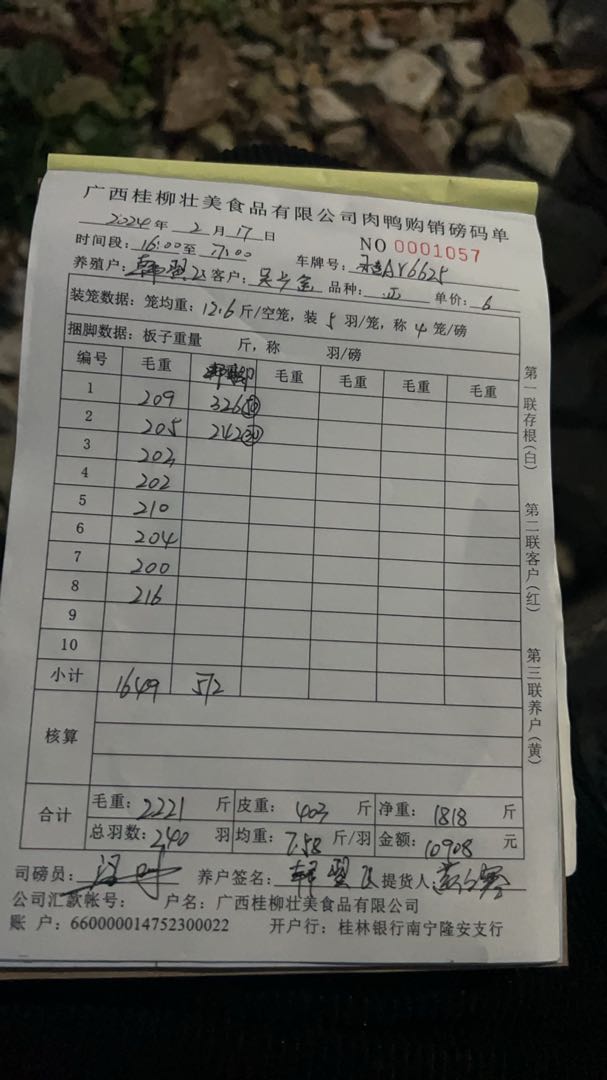 广西桂柳壮美食品有限公司肉鸭购销磅码单
2024年 2 月 17 日
NO 0001057
时间段: 16:00至 17:00 车牌号: AY6625
养殖户: 韩翌飞 客户: 品种: 正 单价: 6
装笼数据: 笼均重: 12.6 斤/空笼, 装 5 羽/笼, 称 4 笼/磅
捆脚数据: 板子重量 斤, 称 羽/磅
编号 毛重 毛重 毛重 毛重 毛重
1 209 326(50)
2 205 242(30)
3 203
4 202
5 210
6 204
7 200
8 216
9
10
小计 1649 572
核算
合计 毛重: 2221 斤 皮重: 403 斤 净重: 1818 斤
总羽数: 240 羽 均重: 7.58 斤/羽 金额: 10908 元
司磅员: 养户签名: 韩翌飞 提货人:
公司汇款帐号: 户名: 广西桂柳壮美食品有限公司
账 户: 660000014752300022 开户行: 桂林银行南宁隆安支行
第一联存根(白)
第二联客户(红)
第三联养户(黄)